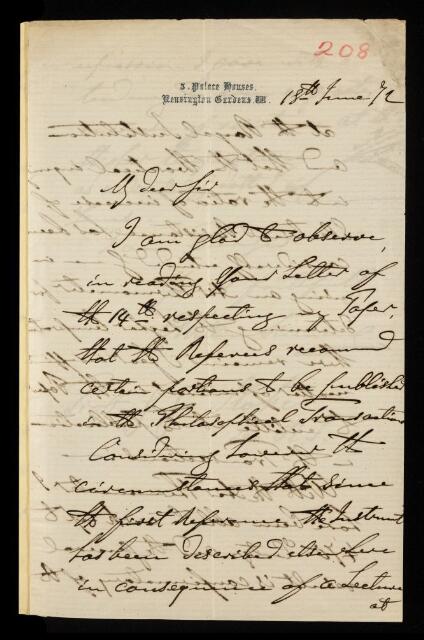 208
3. Palace Houses.
Kensington Gardens. W.
18th June /72
My dear Sir
I am glad to observe,
in reading your Letter of
the 14th respecting my Paper,
that the Referees recommend
certain portions to be published
in the Philosophical Transactions
Considering however the
circumstances that since
the first Reference, the Instrument
has been described elsewhere
in consequence of a Lecture
at